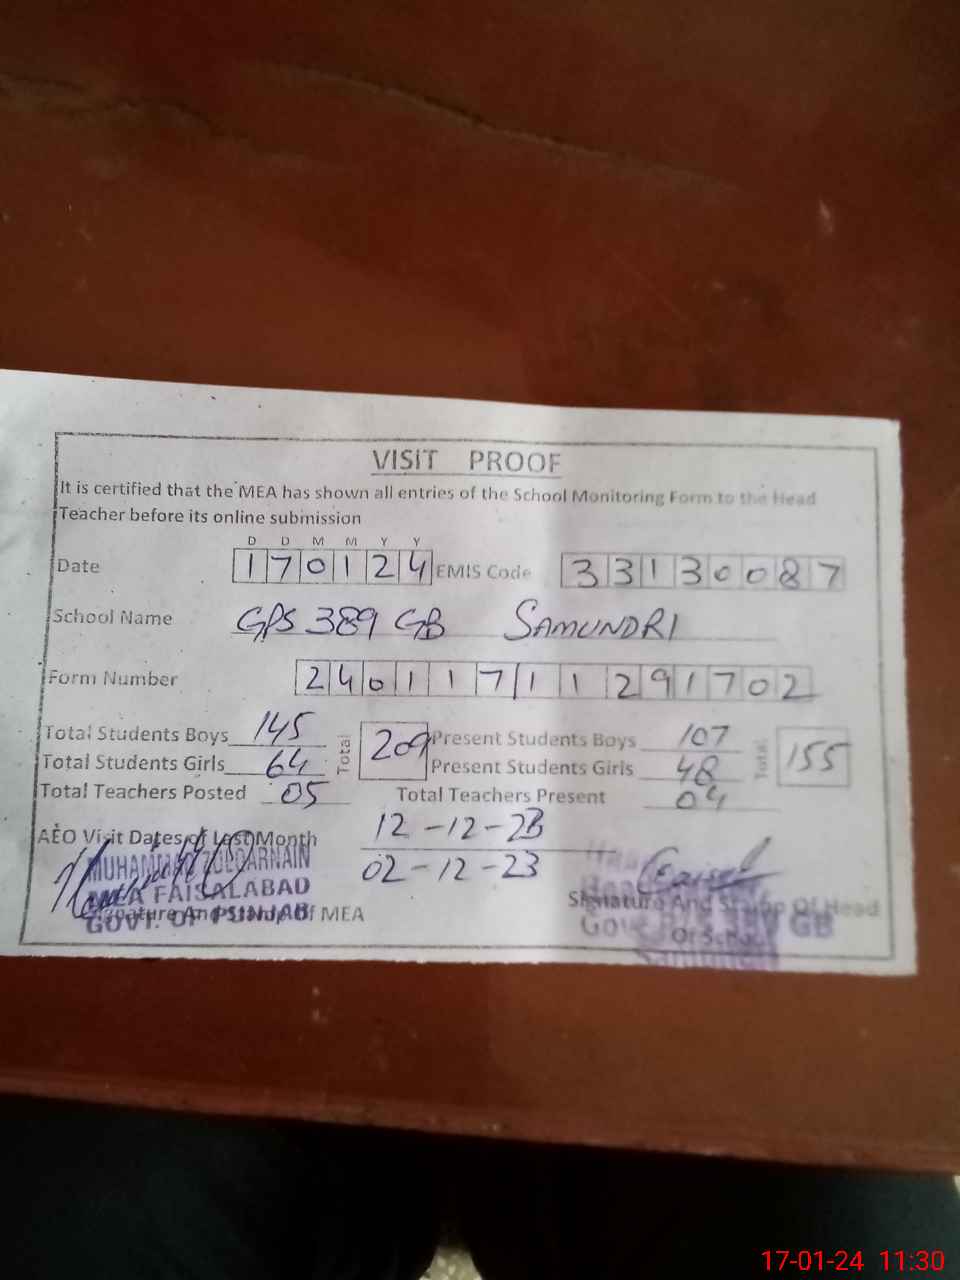 VISIT PROOF
It is certified that the MEA has shown all entries of the School Monitoring Form to the Head
Teacher before its online submission
D D M M Y Y
Date 170124 EMIS Code 33130087
School Name GPS 389 GB SAMUNDRI
Form Number 24011711291702
Total Students Boys 145 Total 209 Present Students Boys 107 Total 155
Total Students Girls 64 Present Students Girls 48
Total Teachers Posted 05 Total Teachers Present 04
AEO Visit Dates of Last Month 12-12-23
02-12-23
MUHAMMAD ZULQARNAIN
MEA FAISALABAD
GOVT. OF PUNJAB
Signature And Stamp Of MEA
Signature And Stamp Of Head
Of School
GB
17-01-24 11:30